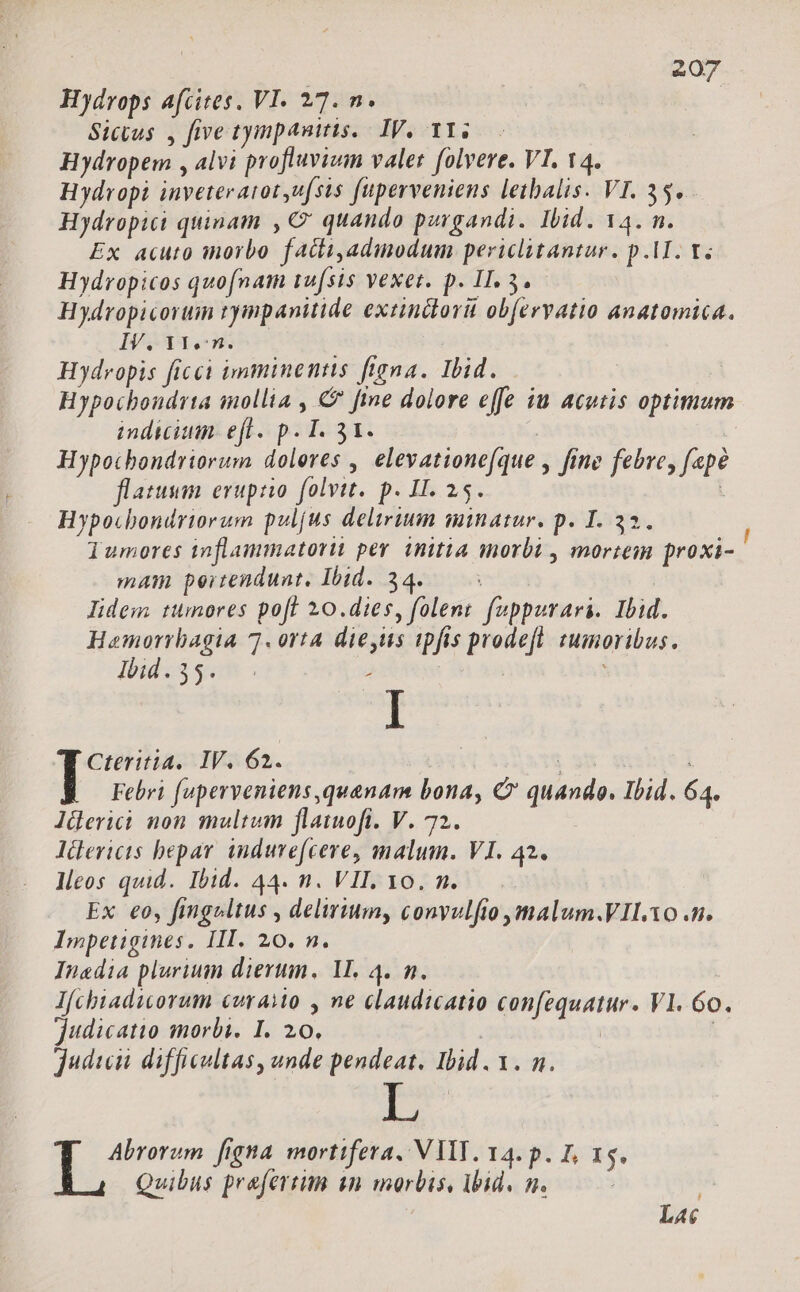 207
Hydrops aſcites. VI. 27. n.
Siccus , ſive tympanitis. IV. 11;
Hydropem , alvi profluvium valet ſolvere. VI. 14.
Hydropi inveteratot,uſsis ſuperveniens lethalis. VI. 35.
Hydropici quinam , & quando purgandi. Ibid. 14. n.
Ex acuto morbo facti,admodum periclitantur. p.II. 1.
Hydropicos quoſnam tuſsis vexet. p. II. 3.
Hydropicorum tympanitide extinctorū obſervatio anatomica.
IV. 11. n.
Hydropis ſicci imminentis ſigna. Ibid.
Hypochondria mollia , & ſine dolore eſſe in acutis optimum
indicium eſt. p. I. 31.
Hypochondriorum dolores , elevationeſque , ſine febre, ſæpè
flatuum eruptio ſolvit. p. II. 25.
Hypochondriorum pulſus delirium minatur. p. I. 32.
Tumores inflammatorii per initia morbi , mortem proxi-
mam portendunt. Ibid. 34.
Iidem tumores poſt 20.dies, ſolent ſuppurari. Ibid.
Hæmorrhagia 7. orta die,iis ipſis prodeſt tumoribus.
Ibid. 35.
I
ICteritia. IV. 62.
Febri ſuperveniens,quænam bona, & quando. Ibid. 64.
Icterici non multum flatuoſi. V. 72.
Ictericis hepar indureſcere, malum. VI. 42.
Ileos quid. Ibid. 44. n. VII. 10. n.
Ex eo, ſingultus , delirium, convulſio,malum.VII.10 .n.
Impetigines. III. 20. n.
Inædia plurium dierum. II. 4. n.
Iſchiadicorum curatio , ne claudicatio conſequatur. VI. 60.
Judicatio morbi. I. 20.
Judicii difficultas, unde pendeat. Ibid. 1. n.
L
LAbrorum ſigna mortifera. VIII. 14. p. I, 15.
Quibus præſertim in morbis, ibid. n.
Lac